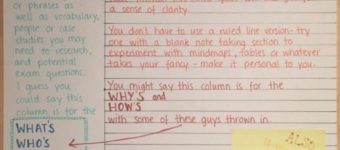 or phrases as
well as vocabulary,
people or case
studies you may
need to research,
and potential
exam questions.
I guess you
could say this
column is for the
WHAT'S
WHO'S
a sense of clarity.
You don't have to use a ruled line version- try
one with a blank note taking section to
experiment with mindmaps, tables or whatever
takes your fancy - make it personal to you.
You might say this column is for the
WHY'S and
HOW'S
with some of these guys thrown in.
ALSO